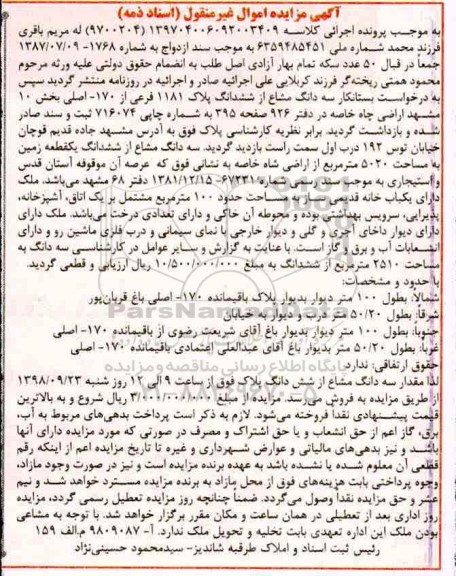 آگهی مزایده اموال غیرمنقول (اسناد ذمه)
به موجب پرونده اجرائی کلاسه ۱۳۹۷۰۴۰۰۶۰۹۲۰۰۳۴۰۹ (۹۷۰۰۲۰۴) له مریم باقری
فرزند محمد شماره ملی ۶۳۵۹۴۸۵۴۵۱ به موجب سند ازدواج به شماره ۱۷۶۸- ۱۳۸۷/۰۷/۰۹
جمعاً در قبال ۵۰ عدد سکه تمام بهار آزادی اصل طلب به انضمام حقوق دولتی علیه ورثه مرحوم
محمود همتی ریخته‌گر فرزند کربلایی علی اجرائیه صادر و اجرائیه در روزنامه منتشر گردید سپس
به درخواست بستانکار سه دانگ مشاع از ششدانگ پلاک ۱۱۸۱ فرعی از ۱۷۰- اصلی بخش ۱۰
مشهد اراضی چاه خاصه در دفتر ۹۲۶ صفحه ۳۹۵ به شماره چاپی ۷۱۶۰۷۴ ثبت و سند صادر
شده و بازداشت گردید. برابر نظریه کارشناسی پلاک فوق به آدرس مشهد جاده قدیم قوچان
خیابان توس ۱۹۲ درب اول سمت راست بازدید گردید. سه دانگ مشاع از ششدانگ یکقطعه زمین
به مساحت ۵۰۲۰ مترمربع از اراضی شاه خاصه به نشانی فوق که عرصه آن موقوفه آستان قدس
و استیجاری به موجب ۶۷۲۳۱- ۱۳۸۱/۱۲/۱۵ دفتر ۶۸ مشهد می‌باشد. ملک
دارای یکباب خانه قدیمی مساحت حدود ۱۰۰ مترمربع مشتمل بر یک اتاق، آشپزخانه،
پذیرایی، سرویس بهداشتی بوده و محوطه آن خاکی و دارای تعدادی درخت می‌باشد. ملک دارای
دارای دیوار داخای آجری و گلی و دیوار خارجی با نمای سیمانی و درب فلزی ماشین رو و دارای
انشعابات آب و برق و گاز است. با عنایت به گزارش و سایر عوامل در کارشناسی سه دانگ به
مساحت ۲۵۱۰ مترمربع از ششدانگ به مبلغ ۱۰/۵۰۰/۰۰۰/۰۰۰ ریال ارزیابی و قطعی گردید.
با حدود و مشخصات:
شمالا: بطول ۱۰۰ متر دیوار بدیوار پلاک باقیمانده ۱۷۰- اصلی باغ قربان‌پور
شرقا: بطول ۵۰/۲۰ متر درب و دیوار به خیابان
جنوبا: بطول ۱۰۰ متر دیوار بدیوار باغ آقای شریعت رضوی از باقیمانده ۱۷۰- اصلی
غربا: بطول ۵۰/۲۰ متر بدیوار باغ آقای عبدالعلی اعتمادی باقیمانده ۱۷۰- اصلی
حقوق ارتفاقی: ندارد
لذا مقدار سه دانگ مشاع از شش دانگ پلاک فوق از ساعت ۹ الی ۱۲ روز شنبه ۱۳۹۸/۰۹/۲۳
از طریق مزایده به فروش می‌رسد. مزایده از مبلغ ریال شروع و به بالاترین
قیمت پیشنهادی نقدا فروخته می‌شود. لازم به ذکر است پرداخت بدهی‌های مربوط به آب،
برق، گاز اعم از حق انشعاب و یا حق اشتراک و مصرف در صورتی که مورد مزایده دارای آنها
باشد و نیز بدهی‌های مالیاتی و عوارض شهرداری و غیره تا تاریخ مزایده اعم از اینکه رقم
قطعی آن معلوم شده یا نشده باشد به عهده برنده مزایده است و نیز در صورت وجود مازاد،
وجوه پرداختی بابت هزینه‌های فوق از محل مازاد به برنده مزایده مسترد خواهد شد و نیم
عشر و حق مزایده نقدا وصول می‌گردد. ضمناً چنانچه روز مزایده تعطیل رسمی گردد، مزایده
روز اداری بعد از تعطیلی در همان ساعت و مکان مقرر برگزار خواهد شد. با توجه به مشاعی
بودن ملک این اداره تعهدی بابت تخلیه و تحویل ملک ندارد. آ- ۹۸۰۹۰۸۷ م.الف ۱۵۹
رئیس ثبت اسناد و املاک طرقبه شاندیز- سیدمحمود حسینی‌نژاد